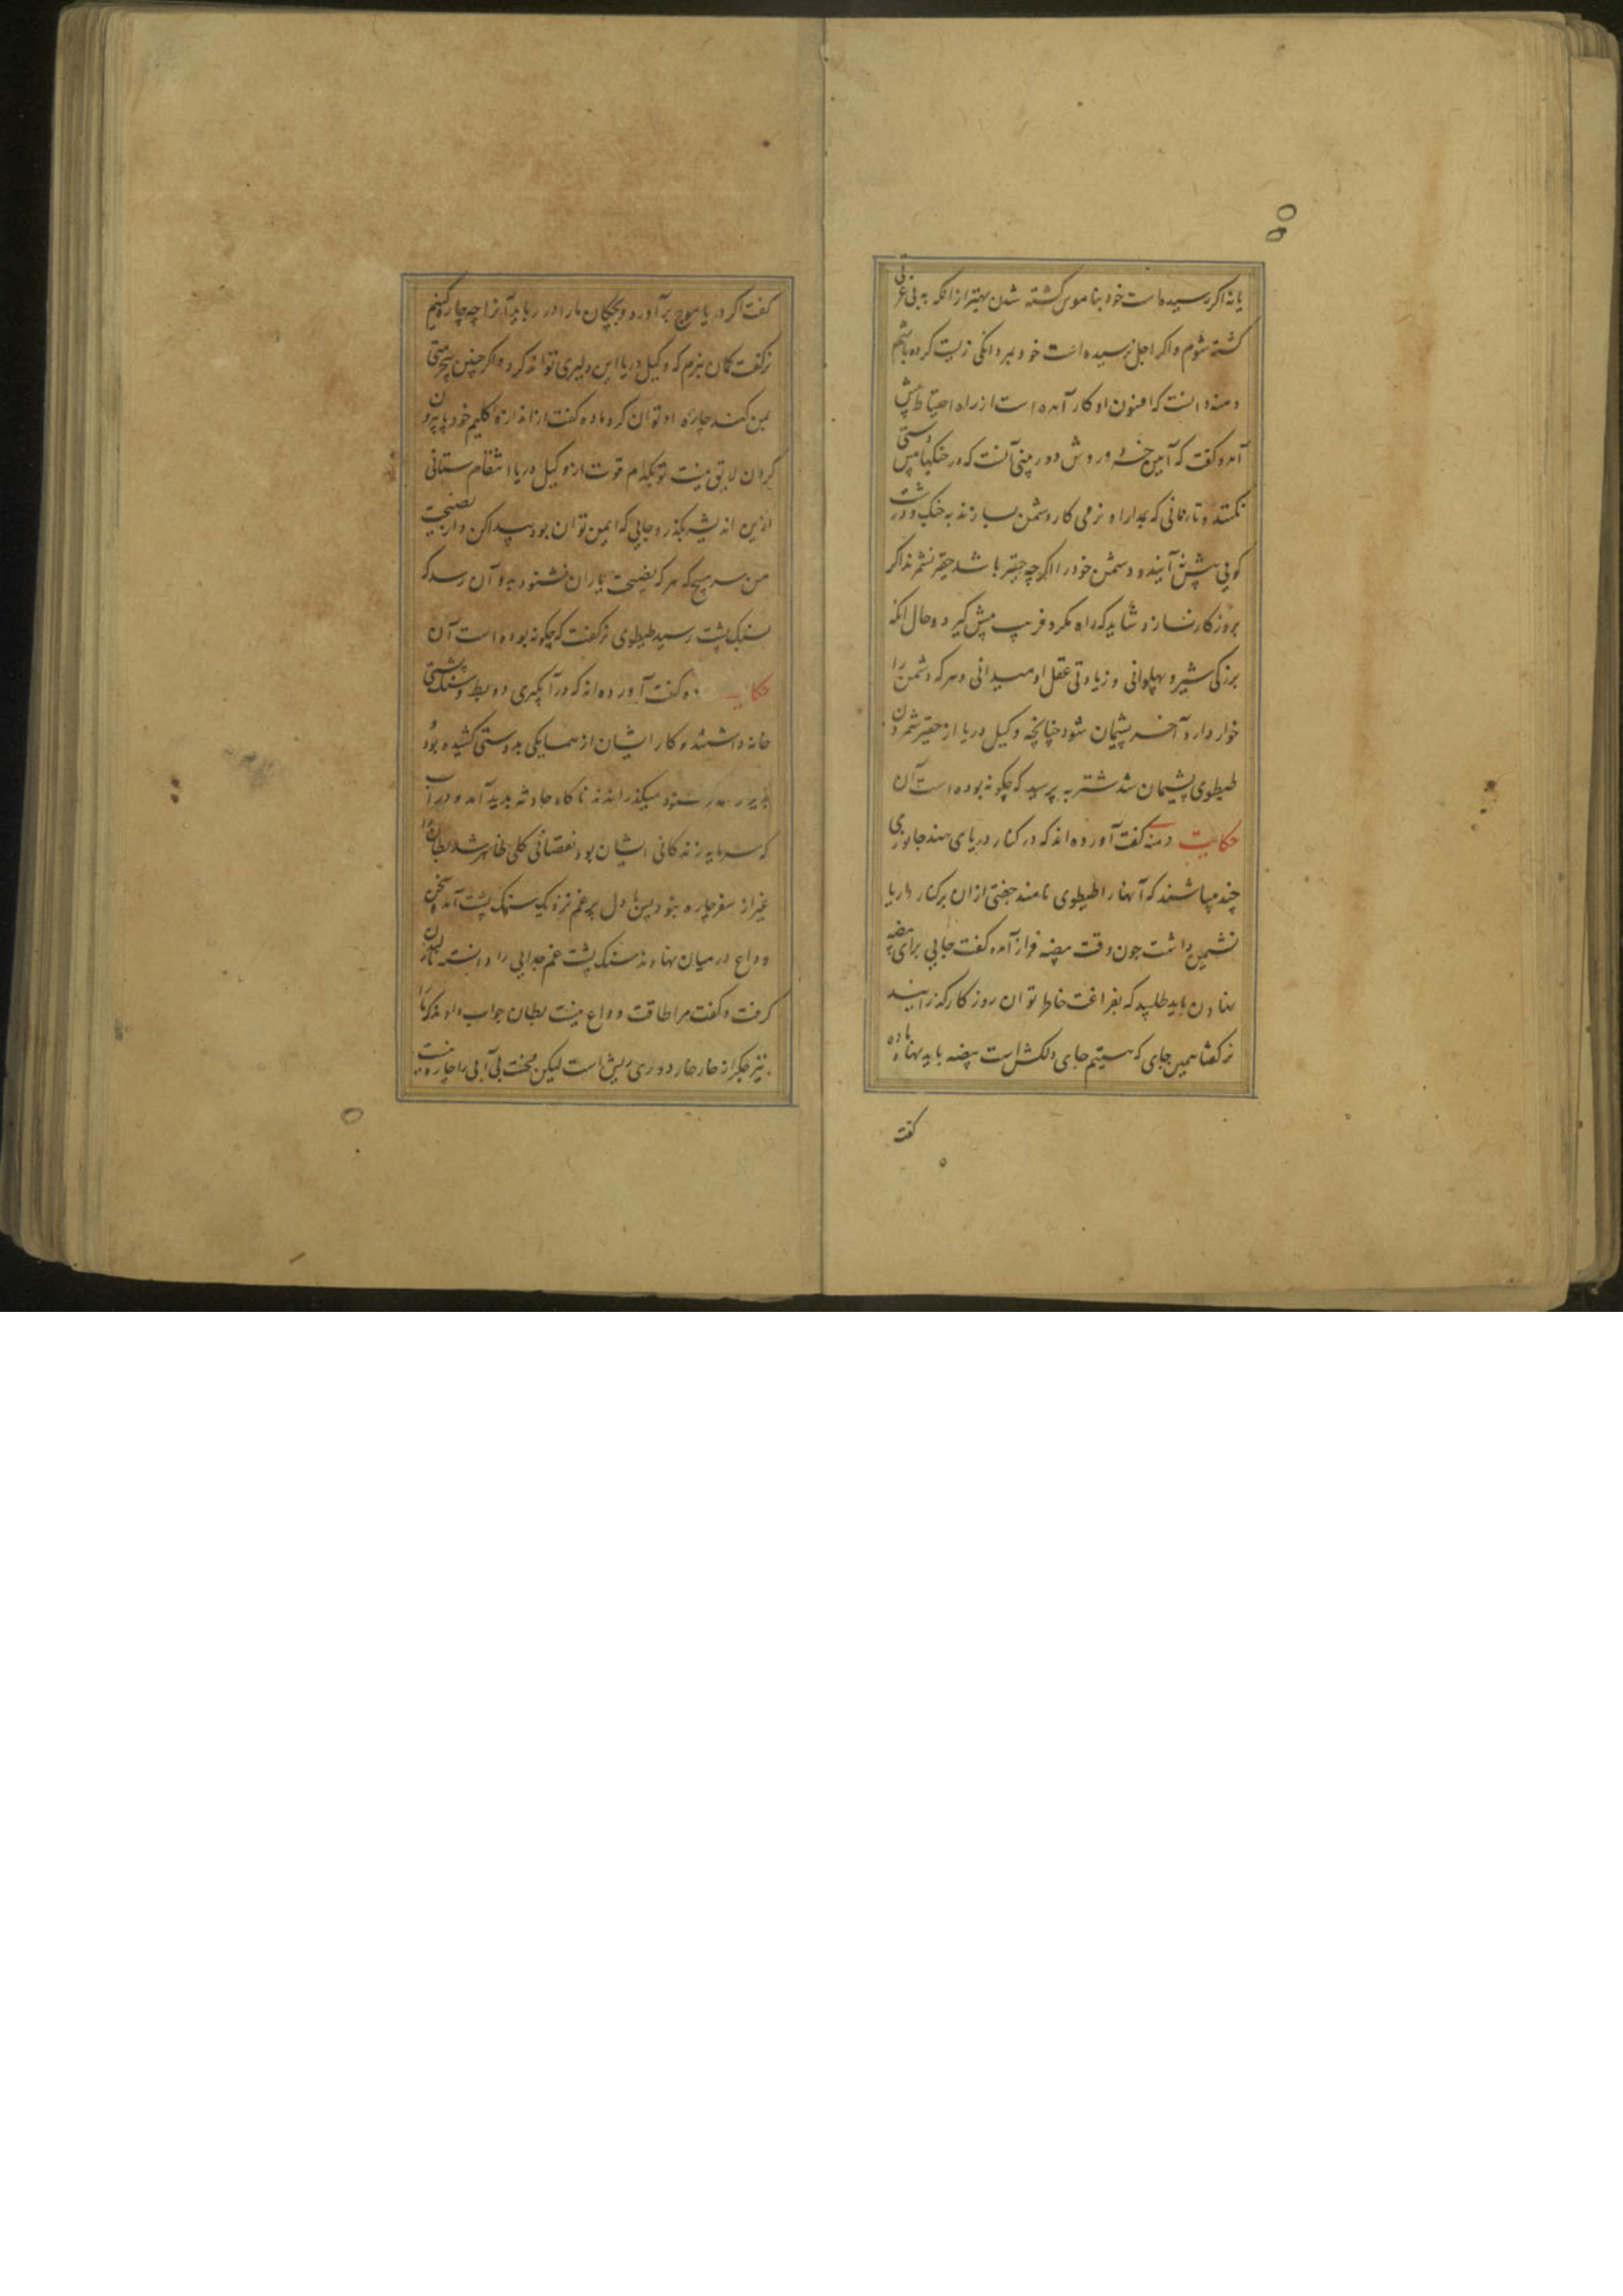 ۵۵
یا نه اگر رسیده است خود بناموس کشته شدن بهتر از انکه به بی عزتی
کشته شوم و اگر اجل نرسیده است خود بمردانگی زیست کرده باشم
دمنه دانست که افسون او کار آمده است از راه احتیاط پیش
آمده گفت که آیین خرد و روش دوربینی آنست که در جنگها پیش دستی
نکنند و تا زمانی که بمدارا و نرمی کار دشمن بسازند به جنگ و درشت
گویی پیش نه آیند و دشمن خود را اگرچه حقیر باشد حقیر نشمرند اگر
بزور کار نسازد شاید که راه مکر و فریب پیش گیرد و حال انکه
بزرگی شیر و پهلوانی و زیادتی عقل او میدانی و هر که دشمن را
خوار دارد آخر پشیمان شود چنانچه وکیل دریا از حقیر شمردن
طیطوی پشیمان شد شتربه پرسید که چگونه بوده است آن
حکایت دمنه گفت آورده اند که در کنار دریای هند جانوری
چند میباشند که آنها را طیطوی نامند جفتی از ان بر کنار دریا
نشیمن داشت چون وقت بیضه فراز آمد ماده گفت جایی برای بیضه
نهادن باید طلبید که بفراغت خاطر توان روزگار گذرانید
نر گفتا همین جای که هستیم جای دلکش است بیضه باید نهاد ماده
گفت
گفت اگر دریا موج برآورد و بچگان ما را در رباید آنرا چه چاره کنیم
نر گفت گمان نبرم که وکیل دریا این دلیری تواند کرد و اگر چنین بیحرمتی
بمن کند چاره او توان کرد ماده گفت از اندازه گلیم خود پا بیرون
کردن لایق نیست تو بکدام قوت از وکیل دریا انتقام ستانی
ازین اندیشه بگذر و جایی که ایمن توان بود پیدا کن و از نصیحت
من سر مپیچ که هر که نصیحت یاران نشنود بدو آن رسد که
سنگ پشت رسید طیطوی نر گفت که چگونه بوده است آن
حکایت ماده گفت آورده اند که در آبگیری دو بط و سنگ پشتی
خانه داشتند و کار ایشان از همسایگی بدوستی کشیده بود
میگذرانند ناگاه حادثه پدید آمد و در آب
که سرمایه زندگانی ایشان بود نقصانی کلی ظاهر شد بطان را
غیر از سفر چاره نبود پس با دل پر غم نزدیک سنگ پشت آمده سخن
وداع در میان نهادند سنگ پشت غم جدایی را دانسته نالیدن
گرفت و گفت مرا طاقت وداع نیست بطان جواب دادند که ما را
نیز جگر از خار خار دوری ریش است لیکن محنت بی آبی را چاره نیست